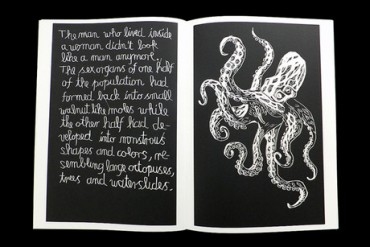 The man who lived inside
a woman didn't look
like a man anymore.
The sex organs of one half
of the population had
formed back into small
walnut like moles while
the other half had de-
veloped into monstrous
shapes and colors, re-
sembling large octopuses,
trees and waterslides.